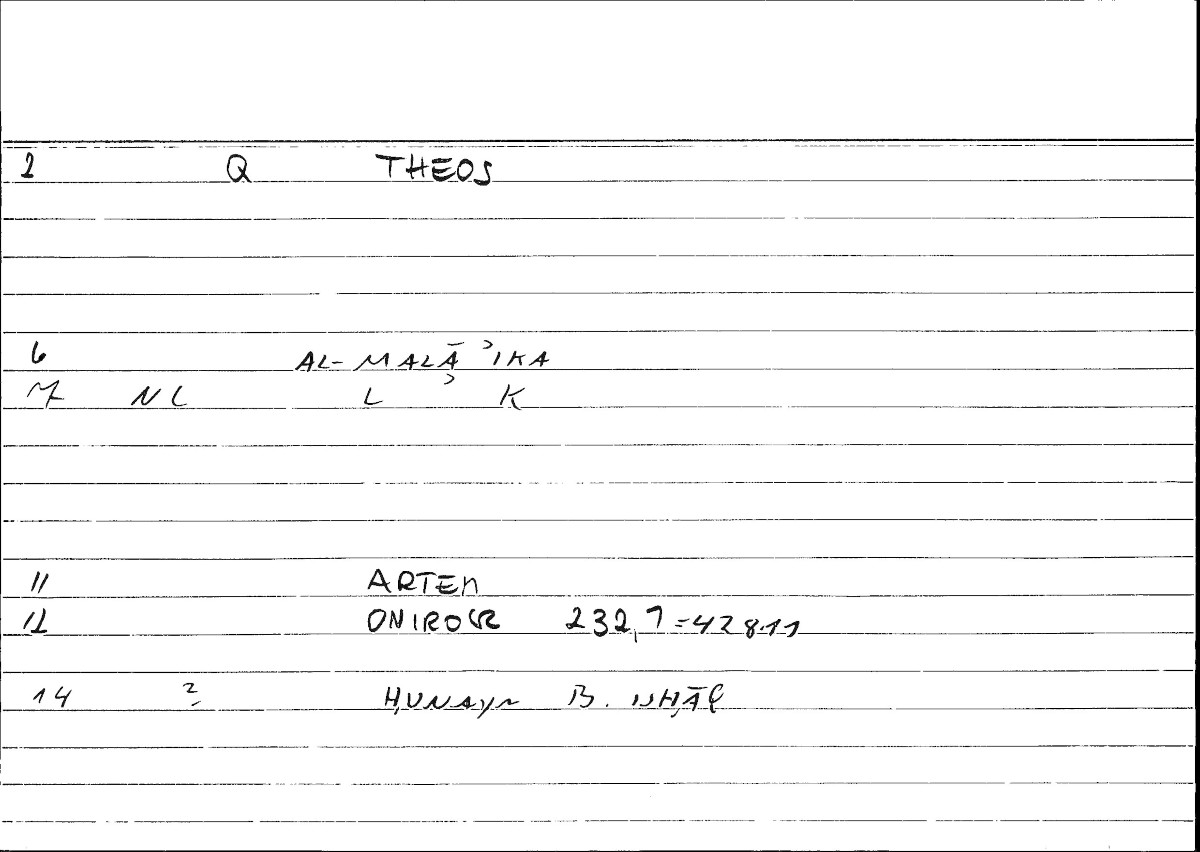 2 Q THEOS
6 AL-MALĀʾIKA
7 NL LʾK
11 ARTEM
12 ONIROCR 232,7=428.11
14 2 ḤUNAYN B. ISḤĀQ